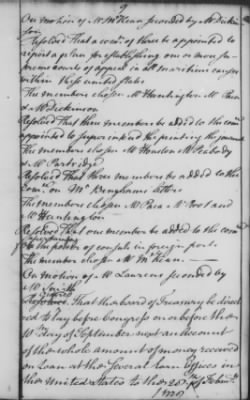 9
On motion of Mr McKean seconded by Mr Dickin
son
Resolved That a comee of three be appointed to
report a plan for establishing one or more su
preme courts of appeal in all maritime causes
within these united states
The members chosen Mr Huntington Mr Paca
& Mr Dickinson
Resolved That three members be added to the comee
appointed to superintend the printing the journals
The members chosen Mr Houston Mr Peabody
& Mr Partridge
Resolved That three members be added to the
Comee on Mr letter
The members chosen Mr Paca Mr Root and
Mr Huntington
Resolved That one member be added to the comee
on powers of consuls in foreign ports
The member chosen Mr McKean
On motion of Mr Laurens seconded by
Mr Smith
Ordered That the board of Treasury be direct
ed to lay before Congress on or before the
10th day of September next an account
of the whole amount of money received
on Loan at the several Loan Offices in
the United States to the 25th of Feby